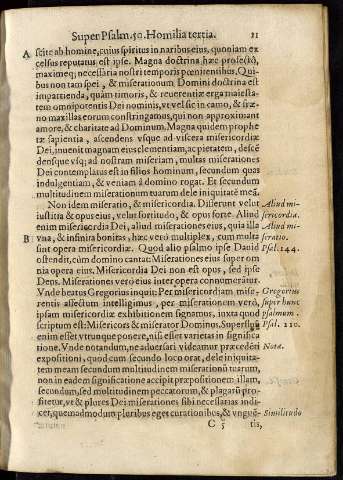 Super Psalm. 50. Homilia tertia. 11
A scite ab homine, cuius spiritus in naribus eius, quoniam ex
celsus reputatus est ipse. Magna doctrina hæc profectò,
maximeq; necessaria nostri temporis pœnitentibus. Qui-
bus non tam spei, & miserationum Domini doctrina est
impartienda, quàm timoris, & reuerentiæ erga maiesta-
tem omnipotentis Dei nominis, vt vel sic in camo, & fræ-
no maxillas eorum constringamus, qui non approximant
amore, & charitate ad Dominum. Magna quidem prophe
tæ sapientia, ascendens vsque ad viscera misericordiæ
Dei, inuenit magnam eius clementiam, ac pietatem, descē
densque vsq; ad nostram miseriam, multas miserationes
Dei contemplatus est in filios hominum, secundum quas
indulgentiam, & veniam à domino rogat. Et secundum
multitudinem miserationum tuarum dele iniquitatē meā.
Non idem miseratio, & misericordia. Differunt velut Aliud mi-
iustitia & opus eius, velut fortitudo, & opus forte. Aliud sericordia.
enim misericordia Dei, aliud miserationes eius, quia illa Aliud mi-
B vna, & infinita bonitas, hæc verò multiplex, cum multa seratio.
sint opera misericordiæ. Quod alio psalmo ipse Dauid Psal. 144.
ostendit, cùm domino cantat: Miserationes eius super om
nia opera eius. Misericordia Dei non est opus, sed ipse
Deus. Miserationes verò eius inter opera connumerātur.
Vnde beatus Gregorius inquit: Per misericordiam mise- Gregorius
rentis affectum intelligimus, per miserationem verò, super hunc
ipsam misericordiæ exhibitionem signamus, iuxta quod psalmum.
scriptum est: Misericors & miserator Dominus. Superfluū Psal. 110.
enim esset vtrunque ponere, nisi esset varietas in significa
tione. Vnde notandum, ne aduersari videamur præcedēti Nota.
expositioni, quod cum secundo loco orat, dele iniquita-
tem meam secundum multitudinem miserationū tuarum,
non in eadem significatione accipit præpositionem illam,
secundum, sed multitudinem peccatorum, & plagarū pro-
fitetur, vt & plures Dei miserationes sibi necessarias indi-
cet, quemadmodum pluribus eget curationibus, & vnguē- Similitudo
C 5 tis,